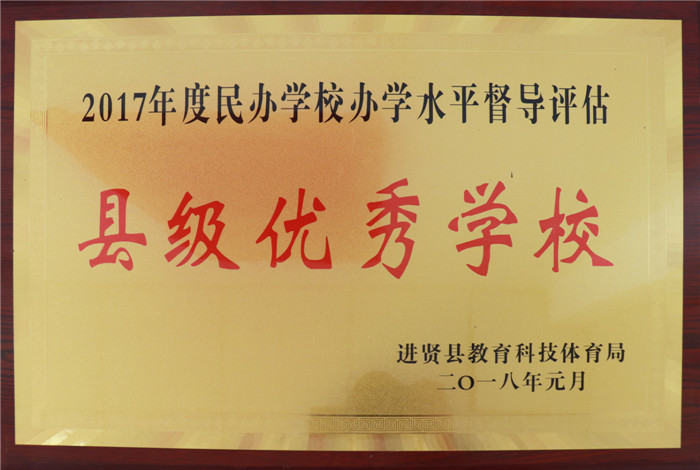 2017年度民办学校办学水平督导评估
县级优秀学校
进贤县教育科技体育局
二〇一八年元月